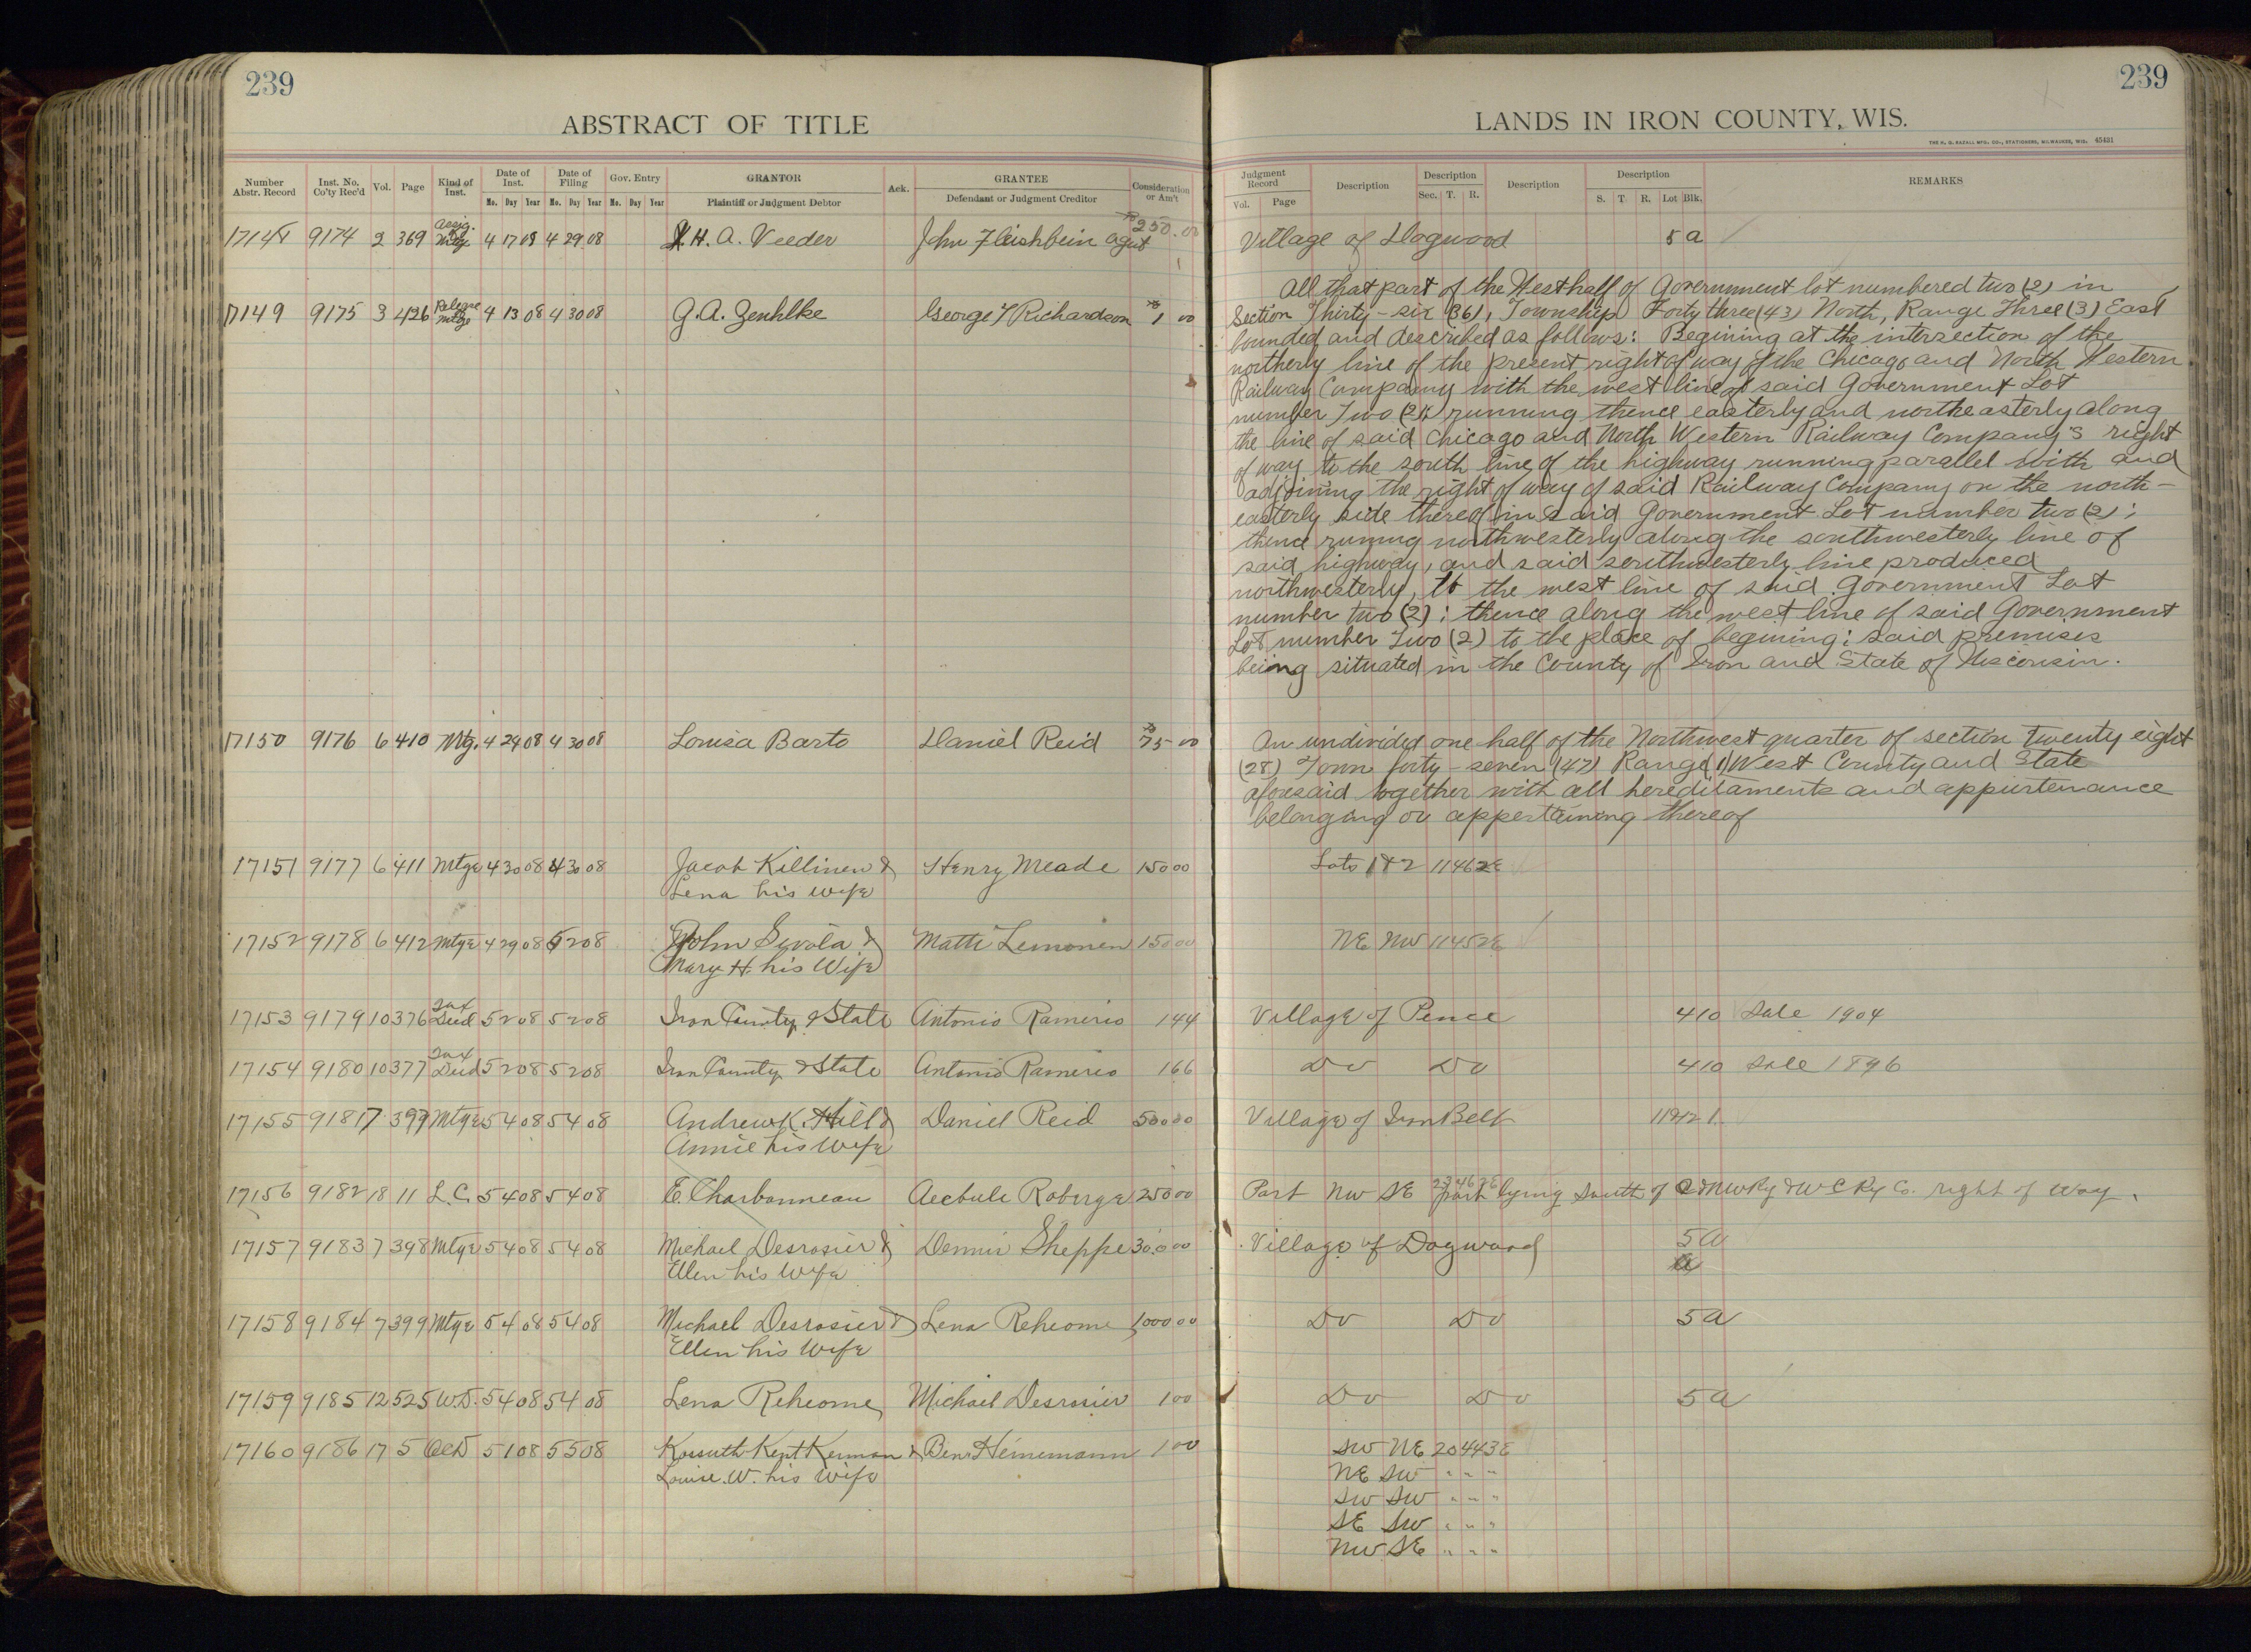 239
ABSTRACT OF TITLE
Number Abstr. Record Inst. No. Co'ty Rec'd Vol. Page Kind of Inst. Date of Inst. Date of Filing Gov. Entry GRANTOR Ack. GRANTEE Consideration or Am't
Mo. Day Year Mo. Day Year Mo. Day Year Plaintiff or Judgment Debtor Defendant or Judgment Creditor
9174 2 369 Assig. of Mtge 4 17 08 4 29 08 H. A. Veeder John Fleishbein agent 250.00
17149 9175 3 426 Release of Mtge 4 13 08 4 30 08 G. A. Zenhlke George T Richardson 1 00
17150 9176 6 410 Mtg. 4 29 08 4 30 08 Louisa Barto Daniel Reid 75 00
17151 9177 6 411 Mtge 4 30 08 4 30 08 Jacob Killinen & Henry Meade 150 00
Lena his wife
17152 9178 6 412 Mtge 4 29 08 5 2 08 John Sivola & Matti Lemonen 150 00
Mary H. his Wife
17153 9179 10 376 Tax Deed 5 2 08 5 2 08 Iron County & State Antonio Ramerio 1 44
17154 9180 10 377 Tax Deed 5 2 08 5 2 08 Iron County & State Antonio Ramerio 1 66
17155 9181 7 397 Mtge 5 4 08 5 4 08 Andrew K. Hill & Daniel Reid 500 00
Annie his Wife
17156 9182 18 11 L.C. 5 4 08 5 4 08 E. Charbonneau Aechule Roberge 250 00
17157 9183 7 398 Mtge 5 4 08 5 4 08 Michael Desrosier & Dennis Sheppe 300 00
Ellen his Wife
17158 9184 7 399 Mtge 5 4 08 5 4 08 Michael Desrosier & Lena Reheome 1000 00
Ellen his Wife
17159 9185 12 525 W.D. 5 4 08 5 4 08 Lena Reheome Michael Desrosier 1 00
17160 9186 17 5 QCD 5 1 08 5 5 08 Kossuth Kent Kennan & Ben Heinemann 1 00
Louise W. his Wife
239
LANDS IN IRON COUNTY, WIS.
THE H. G. RAZALL MFG. CO., STATIONERS, MILWAUKEE, WIS. 45491
Judgment Record Description Description Description Description REMARKS
Vol. Page Sec. T. R. S. T. R. Lot Blk.
Village of Dogwood 5 a
All that part of the West half of Government lot numbered two (2) in
Section Thirty-six (36), Township Forty three (43) North, Range Three (3) East
bounded and described as follows: Begining at the intersection of the
northerly line of the present right of way of the Chicago and North Western
Railway Company with the west line of said Government Lot
number Two (2); running thence easterly and northeasterly along
the line of said Chicago and North Western Railway Company's right
of way to the south line of the highway running parallel with and
adjoining the right of way of said Railway Company on the north-
easterly side thereof in said Government Lot number two (2);
thence runing northwesterly along the southwesterly line of
said highway, and said southwesterly line produced
northwesterly, to the west line of said Government Lot
number two (2); thence along the west line of said Government
Lot number Two (2) to the place of begining; said premises
being situated in the County of Iron and State of Wisconsin.
An undivided one half of the Northwest quarter of section twenty eight
(28) Town forty-seven (47) Range (1) West County and State
aforesaid together with all hereditaments and appurtenance
belonging or appertaining thereof
Lots 1 & 2 11 46 2E
NE NW 11 45 2E
Village of Pence 4 10 Sale 1904
Do Do 4 10 Sale 1896
Village of Iron Belt
Part NW SE 23 46 2E part lying south of C & NW Ry & W C Ry Co. right of way.
Village of Dogwood 5 a
Do Do 5 a
Do Do 5 a
SW NE 20 44 3E
NE SW " " "
SW SW " " "
SE SW " " "
NW SE " " "